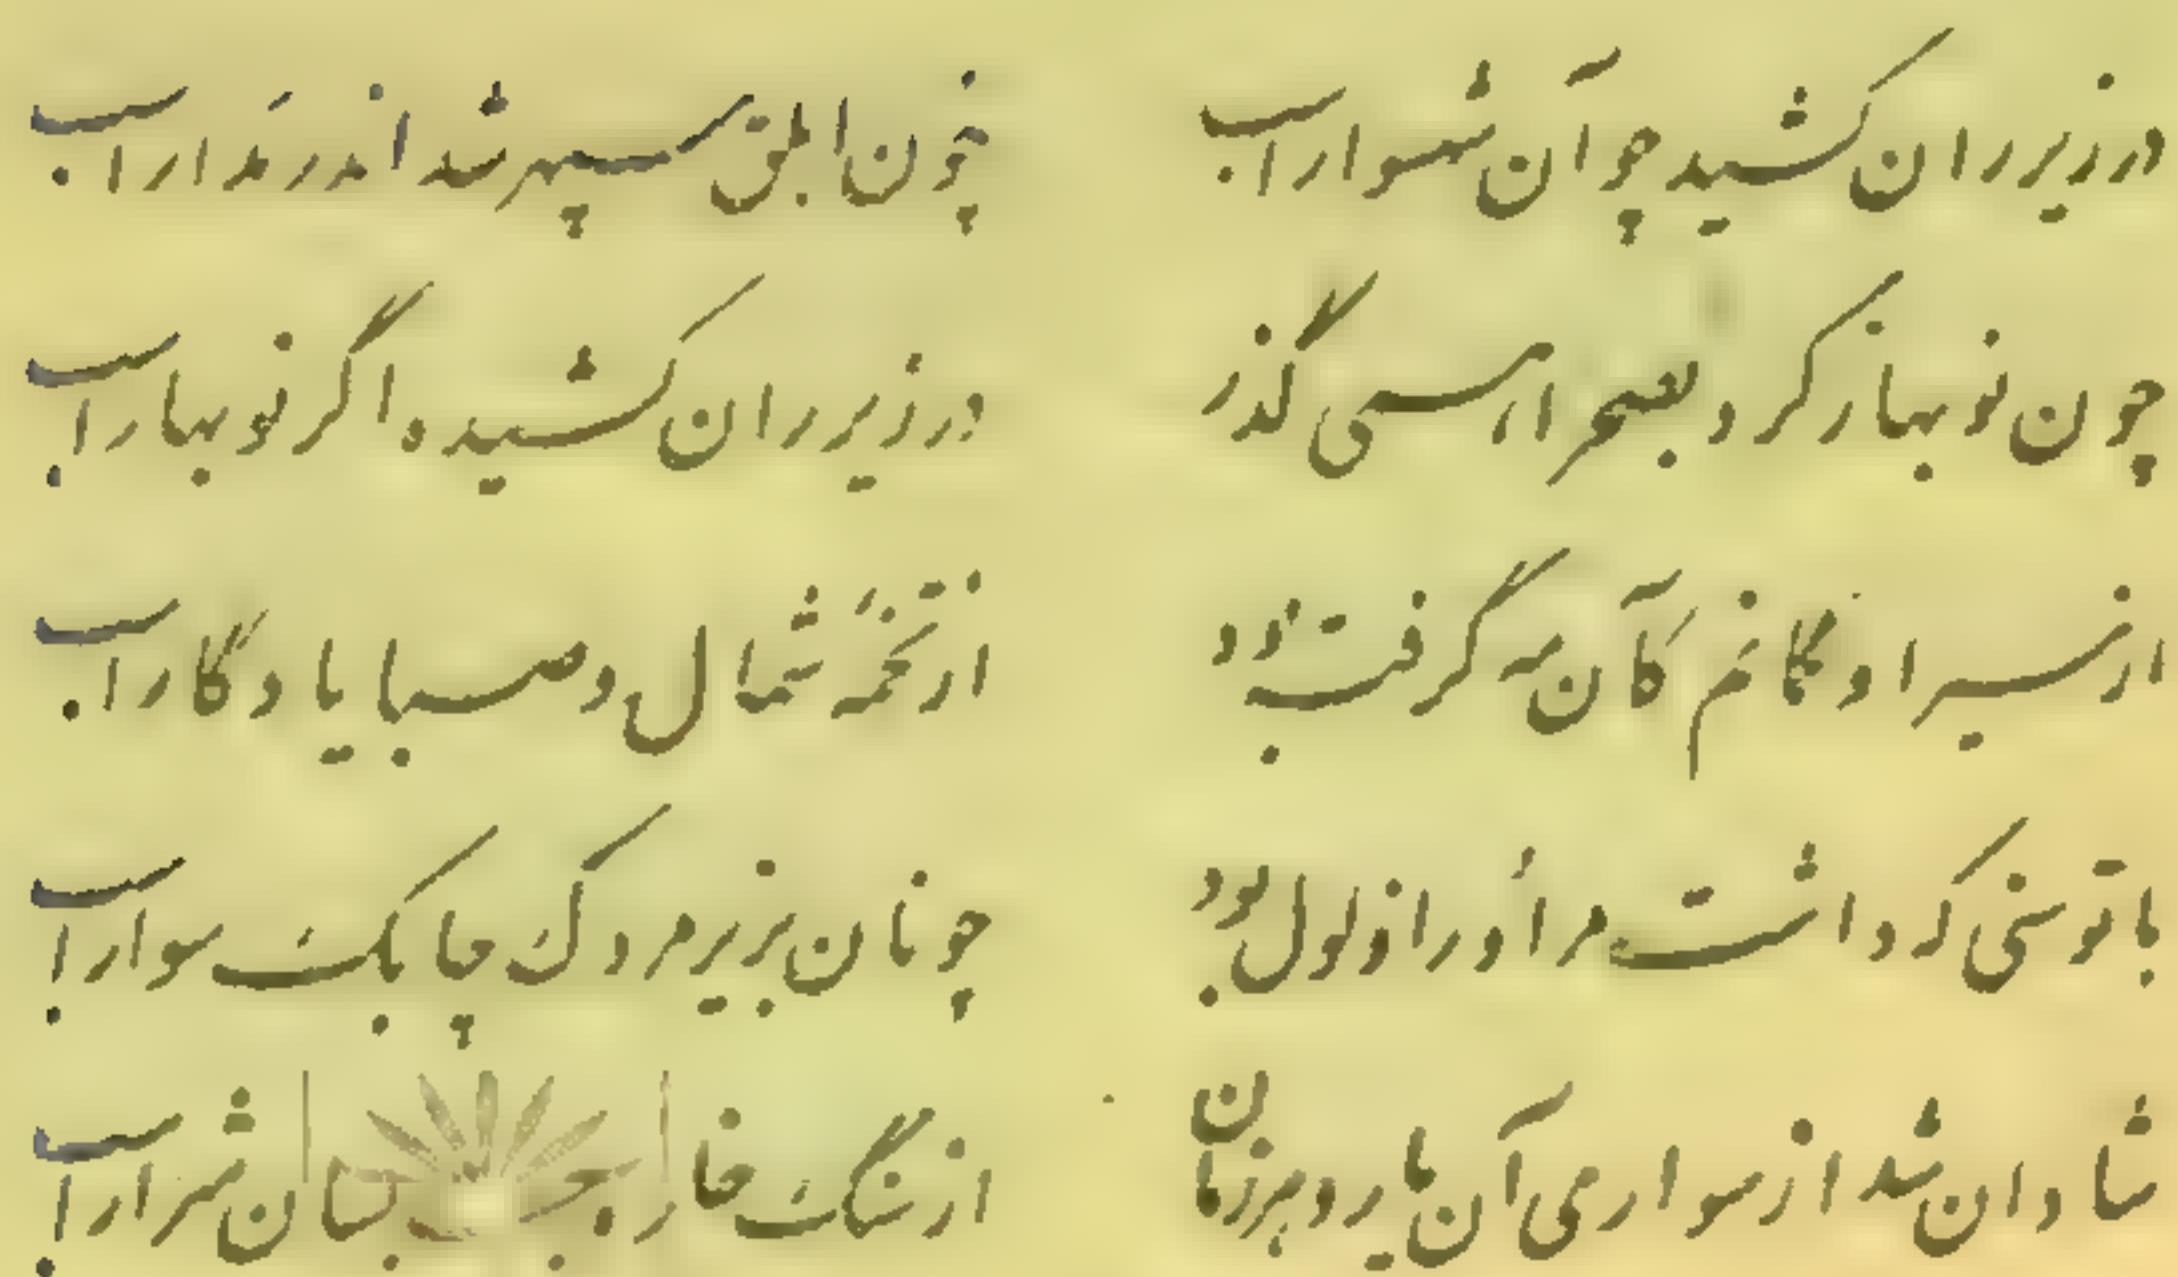 در زیر ران کشید چو آن شهسوار اسب
چون ابلق سپهر شد اندر مدار اسب
چون نوبهار کرد بصحرا همی گذر
در زیر ران کشیده اگر نوبهار اسب
از سیر او گمانم کان مه گرفته بود
از تخمهٔ شمال و صبا یادگار اسب
با توسنی که داشت مر او را ذلول بود
چونان بزیر مردک چابک سوار اسب
شادان شد از سواری آن یار و هر زمان
از سنگ خاره بسان شرار اسب